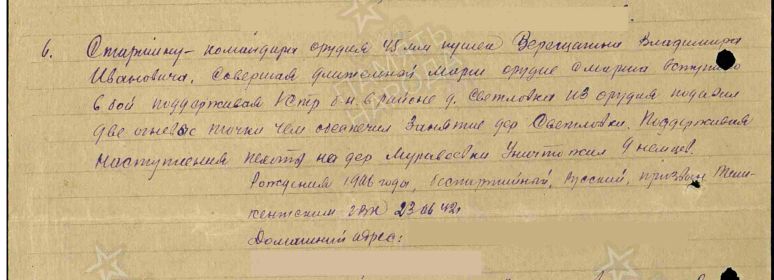 6. Старшину - командира орудия 45 мм пушек Верещагина Владимира
Ивановича. Совершая длительный марш орудие с марша вступило
в бой поддерживая 1 стр б-н в районе д. Светловка из орудия подавил
две огневые точки чем обеспечил занятие дер Светловки. Поддерживая
наступления пехоты на дер Муравьевки уничтожил 9 немцев.
Рождения 1906 года, беспартийный, русский, призван
кентским ГВК 23.06.42г
Домашний адрес:
ПАМЯТЬ
НАРОДА